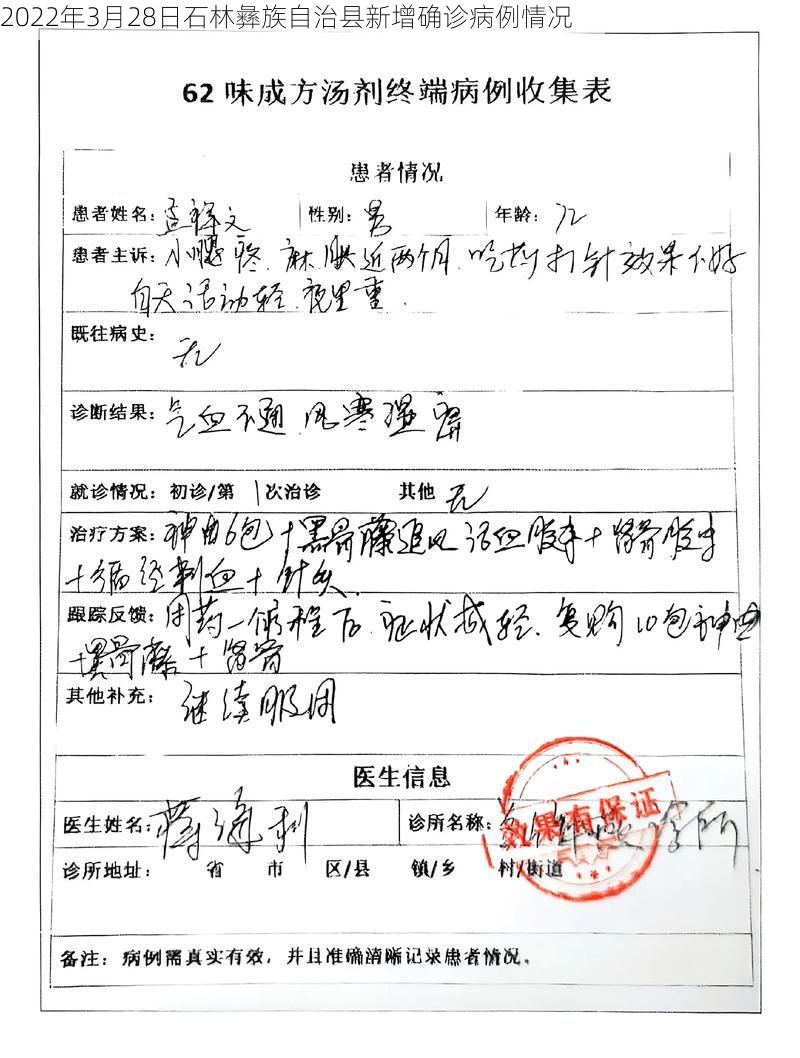 2022年3月28日石林彝族自治县新增确诊病例情况
62味成方汤剂终端病例收集表
患者情况
患者姓名： 性别：男 年龄：72
患者主诉：小腿疼.麻.近两个月.吃药打针效果不好
白天活动轻.夜里重.
既往病史：
无
诊断结果：气血不通.风寒湿
就诊情况：初诊/第1次治诊 其他 无
治疗方案：神曲6包+黑骨藤追风活血胶囊+肾骨胶囊
+循经刺血+针灸.
跟踪反馈：用药一个疗程后.症状减轻.复购10包神曲
+黑骨藤+肾骨
其他补充：继续服用
医生信息
医生姓名：通利 诊所名称：诊所
效果有保证
诊所地址： 省 市 区/县 镇/乡 村/街道
备注：病例需真实有效，并且准确清晰记录患者情况。